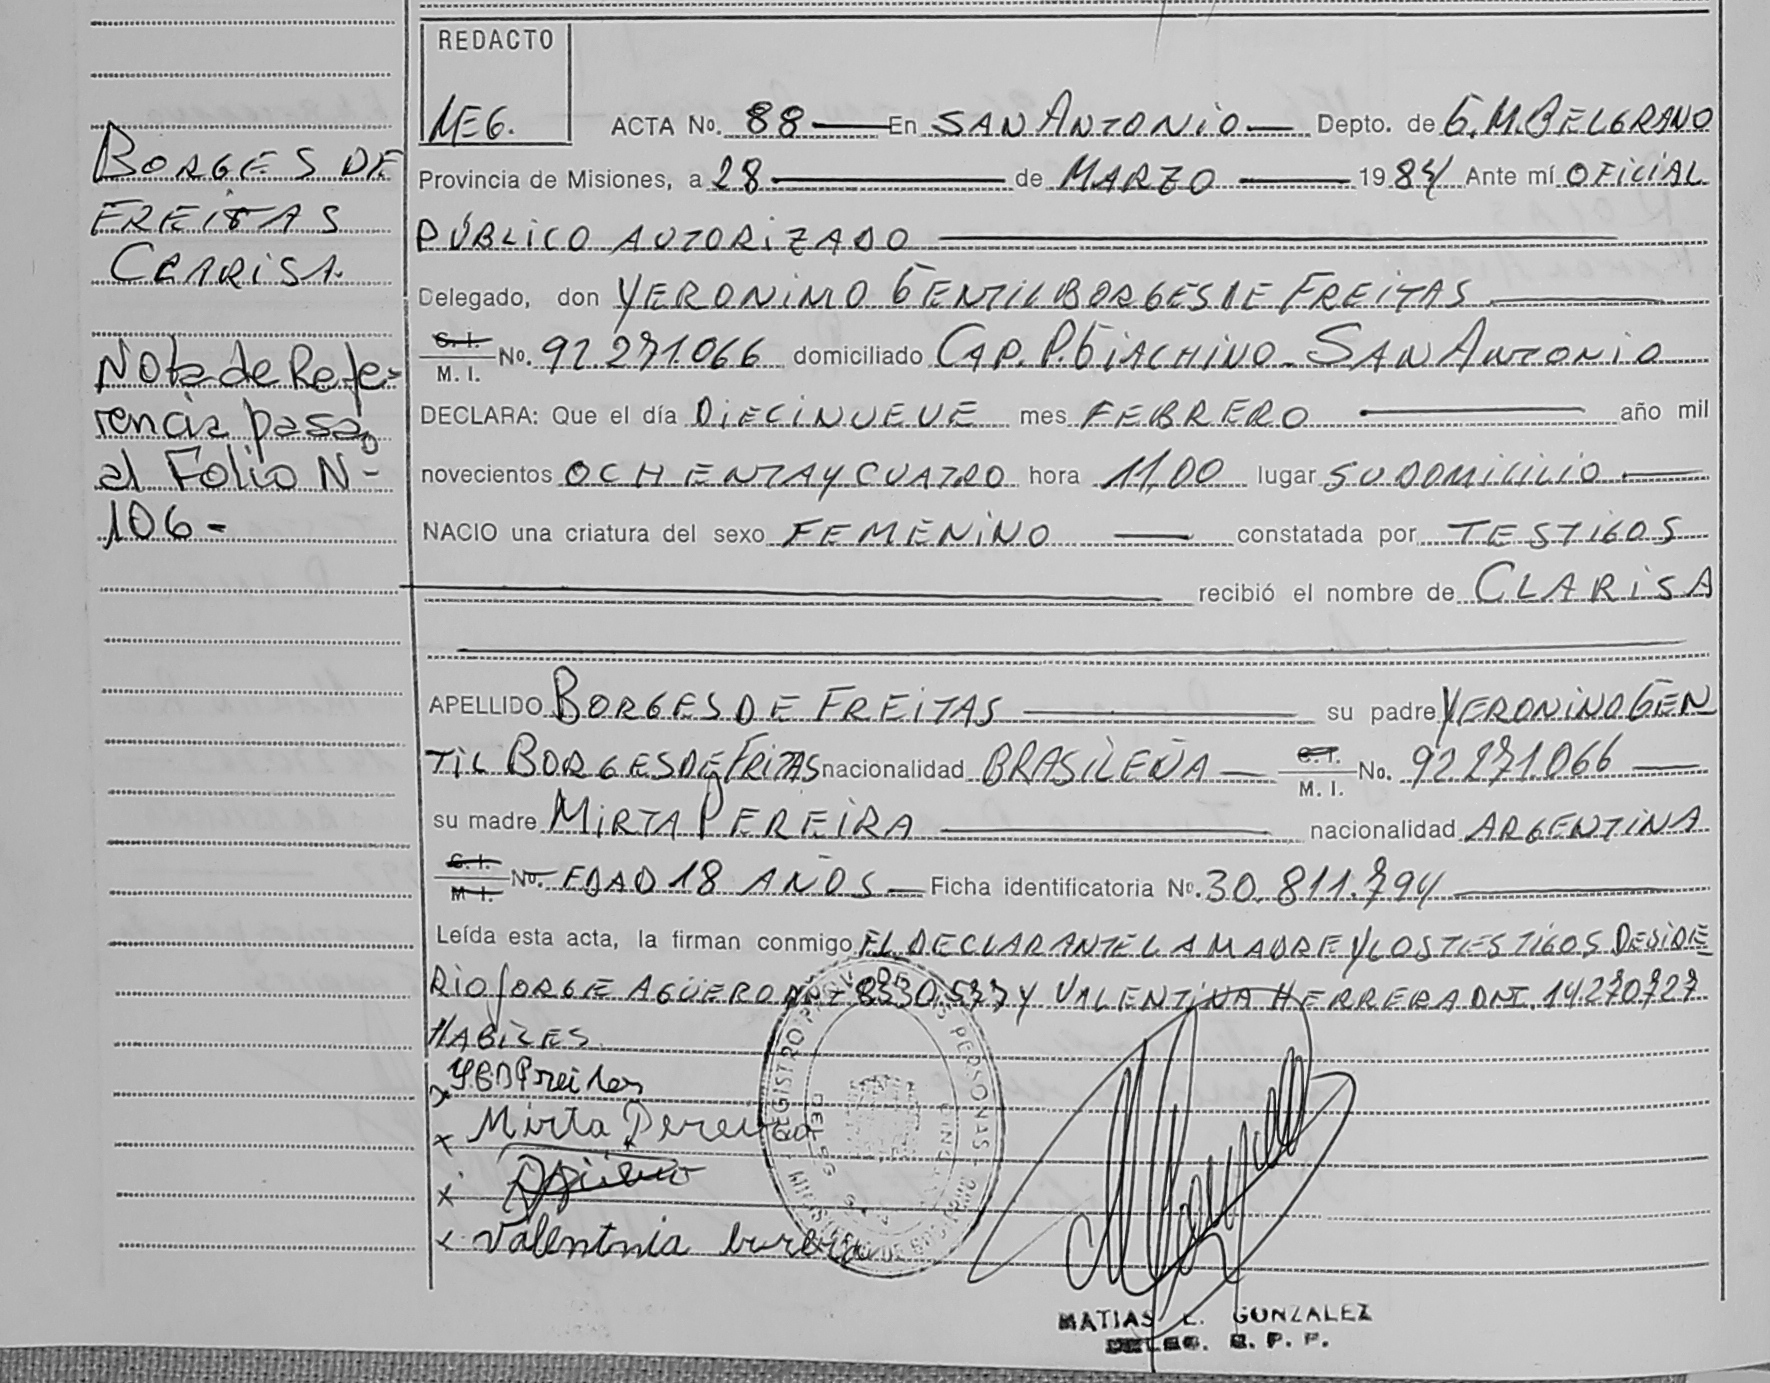 REDACTO
MEG.
ACTA No. 88 En SAN ANTONIO Depto. de G. M. BELGRANO
BORGES DE
FREITAS
CLARISA.
Nota de Refe-
rencia pasa
al Folio Nº
106-
Provincia de Misiones, a 28 de MARZO 1984 Ante mí OFICIAL
PÚBLICO AUTORIZADO
Delegado, don YERONIMO GENTIL BORGES DE FREITAS
C. I. M. I. No. 92.271.066 domiciliado CAP. P. GIACHINO - SAN ANTONIO
DECLARA: Que el día DIECINUEVE mes FEBRERO año mil
novecientos OCHENTA Y CUATRO hora 11,00 lugar SU DOMICILIO
NACIO una criatura del sexo FEMENINO constatada por TESTIGOS
recibió el nombre de CLARISA
APELLIDO BORGES DE FREITAS su padre YERONINO GEN
TIL BORGES DE FRITAS nacionalidad BRASILEÑA C. I. M. I. No. 92.271.066
su madre MIRTA PEREIRA nacionalidad ARGENTINA
C. I. M. I. No. EDAD 18 AÑOS Ficha identificatoria Nº. 30.811.794
Leída esta acta, la firman conmigo EL DECLARANTE LA MADRE Y LOS TESTIGOS DESIDE
RIO JORGE AGÜERO DNI 8330.577 Y VALENTINA HERRERA DNI. 14.270727
HABILES.
x YGBFreitas
x Mirta Pereira
x Agüero
x Valentnia
REGISTRO PROV. DE LAS PERSONAS
MATIAS L. GONZALEZ
DELEG. R. P. P.